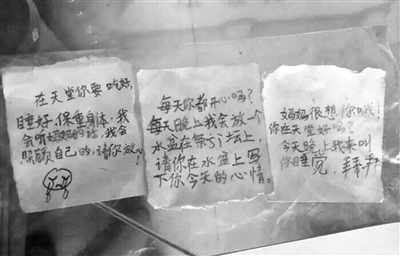 在天堂你要吃好,
睡好,保重身体,我
会听妈妈的话,我会
照顾自己的,请你放心!
每天你都开心吗?
每天晚上我会放一个
水盆在祭坛上,
请你在水盆上写
下你今天的心情。
妈妈很想你哦!
你在天堂好吗?
今天晚上我来叫
你睡觉,拜拜